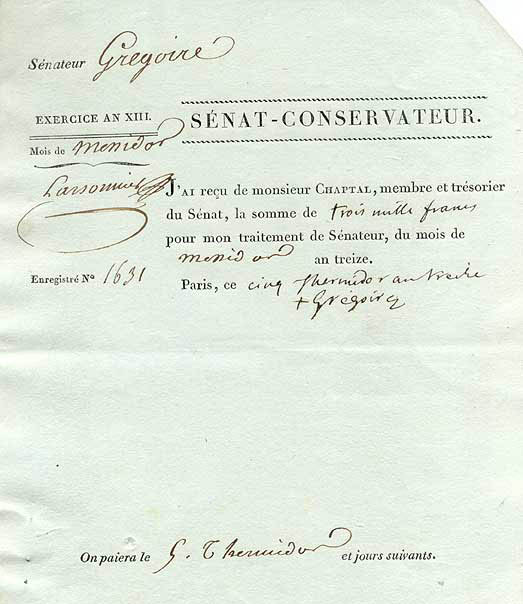 Sénateur Grégoire
EXERCICE AN XIII.
SÉNAT-CONSERVATEUR.
Mois de Messidor
J'AI reçu de monsieur CHAPTAL, membre et trésorier
du Sénat, la somme de trois mille francs
pour mon traitement de Sénateur, du mois de
Messidor an treize.
Enregistré N° 1631
Paris, ce cinq thermidor an treize
+ Grégoire
On paiera le 5. Thermidor et jours suivants.